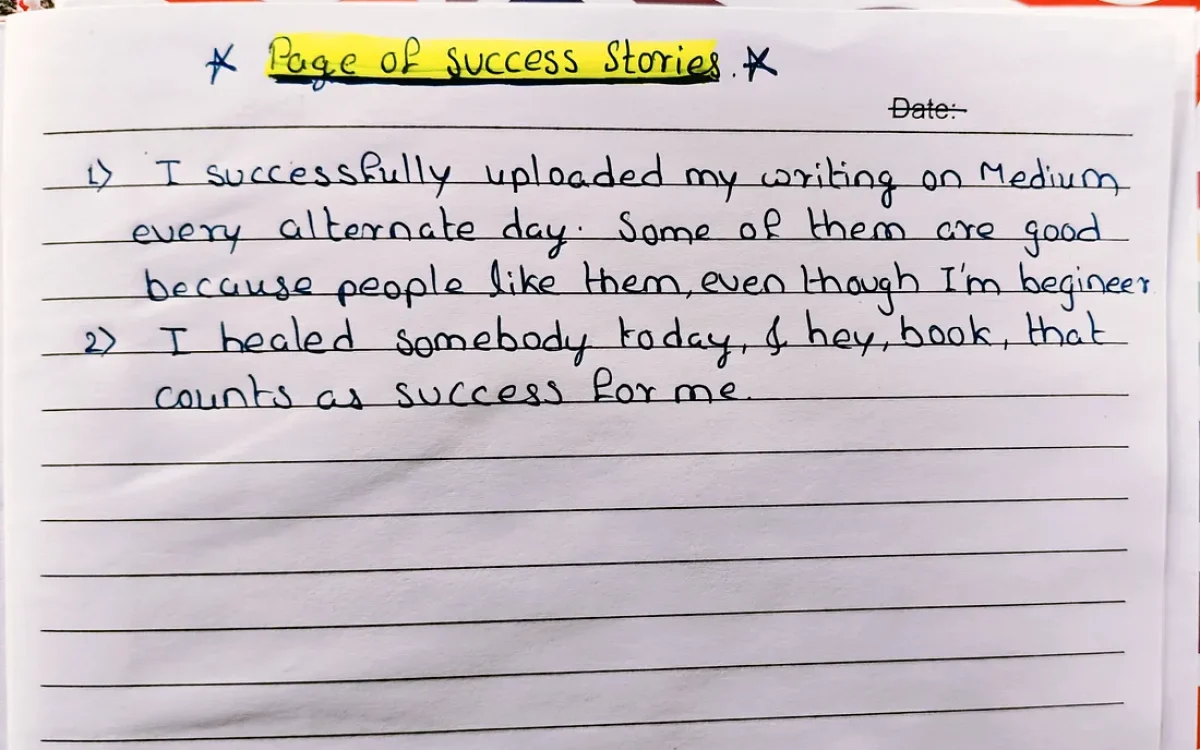 * Page of success Stories. *
Date:-
1) I successfully uploaded my writing on Medium
every alternate day. Some of them are good
because people like them, even though I'm begineer
2) I healed somebody today, & hey, book, that
counts as success for me.